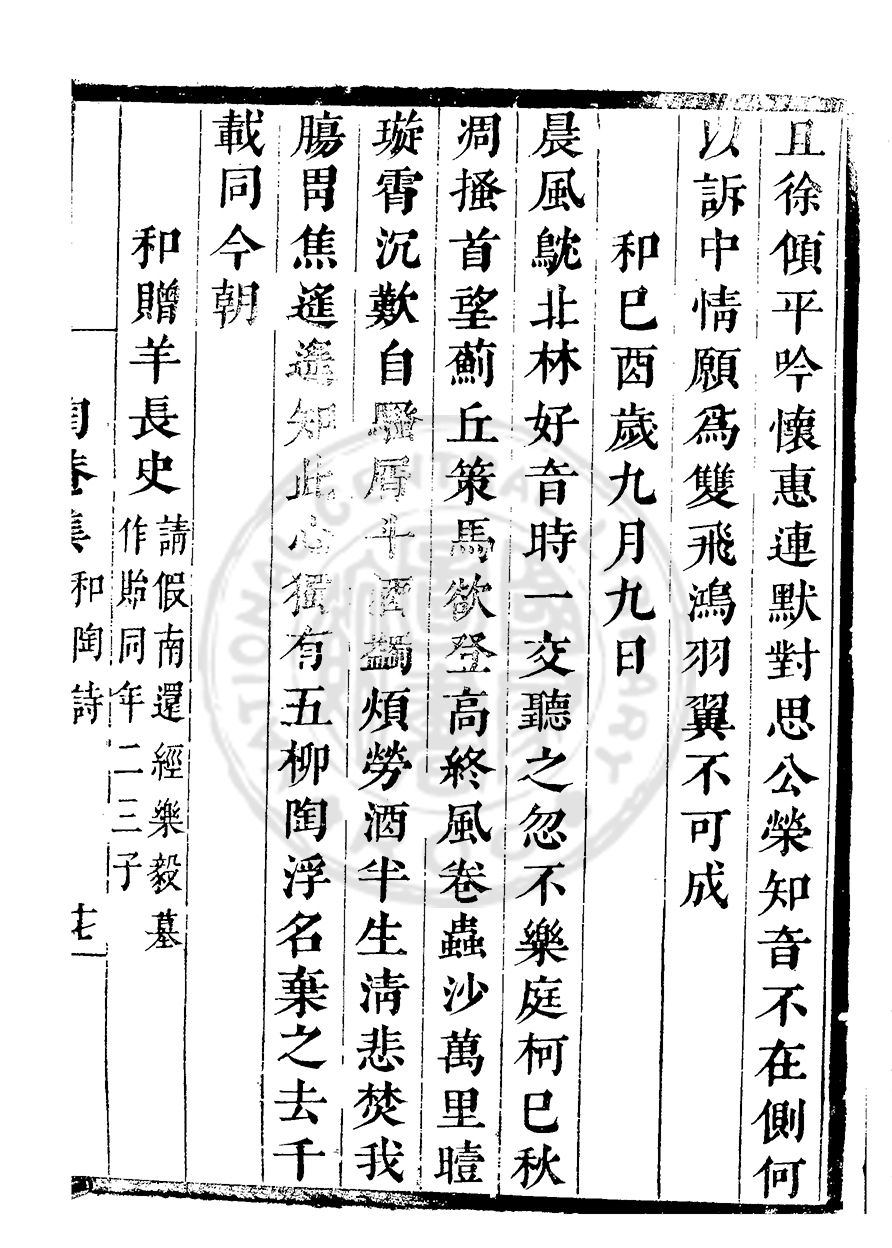 且徐傾平吟懷惠連默對思公榮知音不在側何
以訴中情願為雙飛鴻羽翼不可成
和巳酉歲九月九日
晨風鴥北林好音時一交聽之忽不樂庭柯巳秋
凋搔首望薊丘策馬欲登高終風卷蟲沙萬里曀
璇霄沉歎自騷屑斗酒蠲煩勞酒半生清悲焚我
腸胃焦遙遙知此心獨有五柳陶浮名棄之去千
載同今朝
和贈羊長史請假南還經樂毅墓
作貽同年二三子
陶菴集 和陶詩